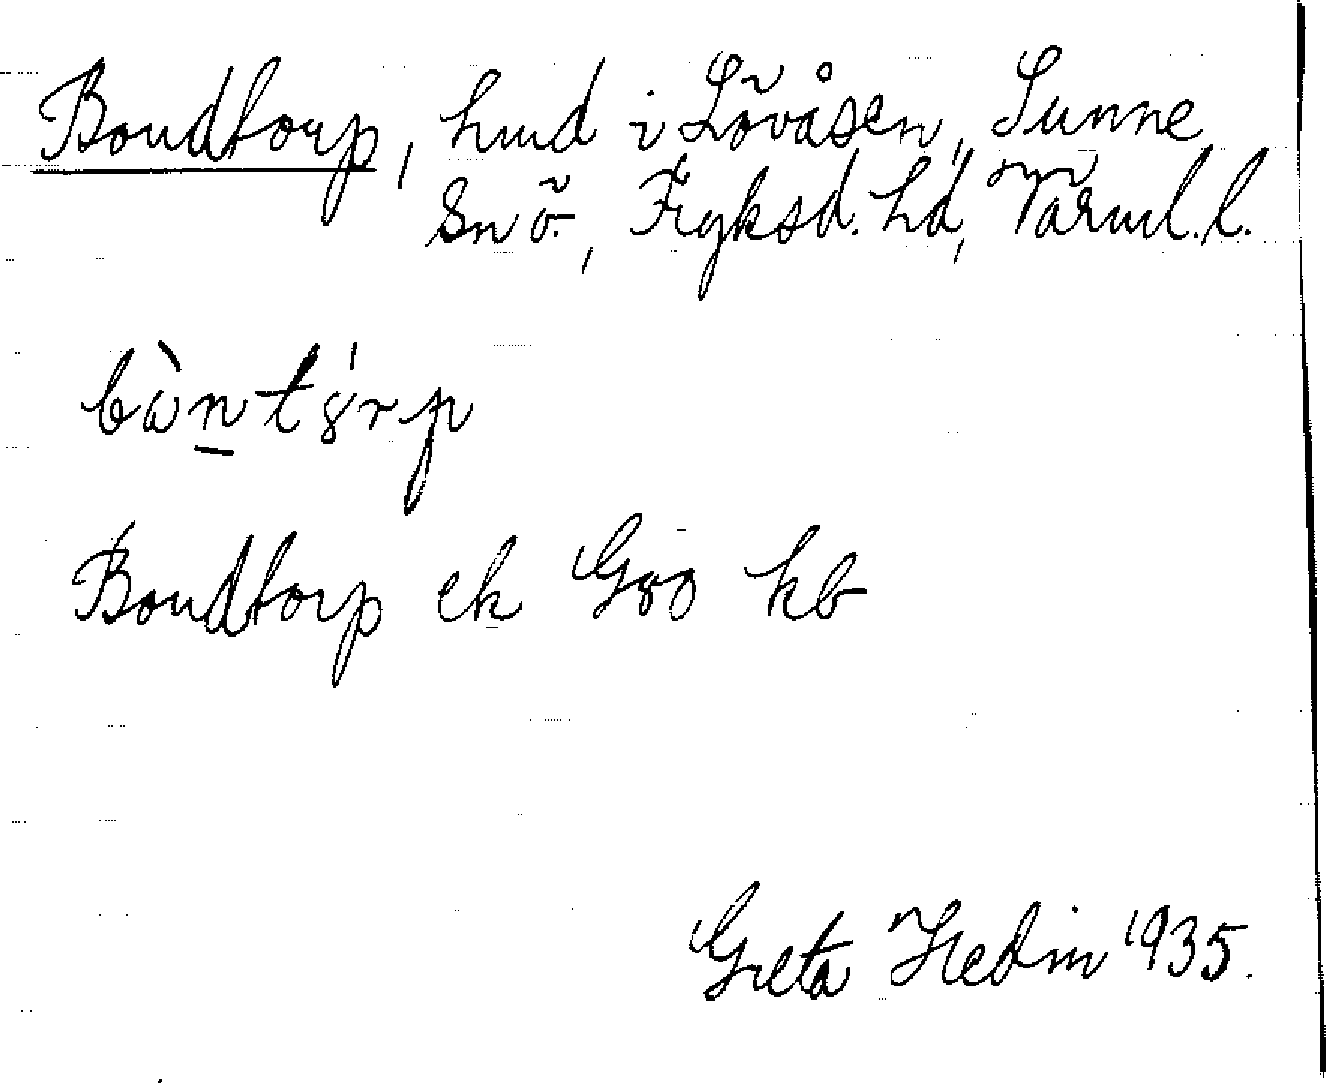 Bondtorp, hmd i Lövåsen, Sunne
snö., Fryksd. hd, Värml. l.
bòntórp
Bondtorp ek G80 kb
Greta Hedin 1935.